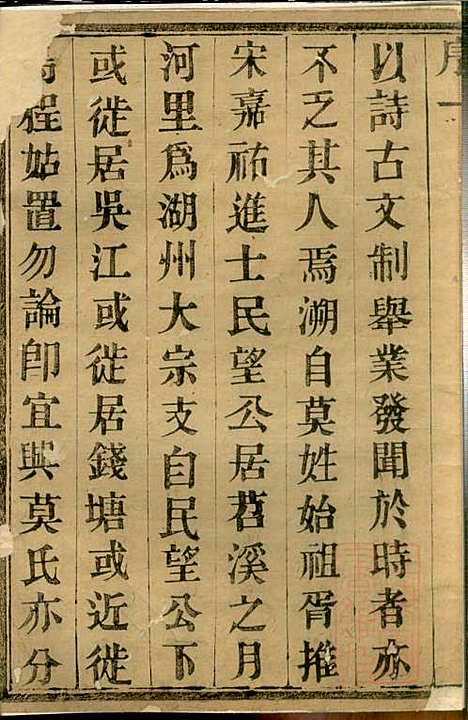 序一
以詩古文制舉業發聞於時者亦
不乏其人焉溯自莫姓始祖胥推
宋嘉祐進士民望公居苕溪之月
河里為湖州大宗支自民望公下
或徙居吳江或徙居錢塘或近徙
程姑置勿論即宜興莫氏亦分